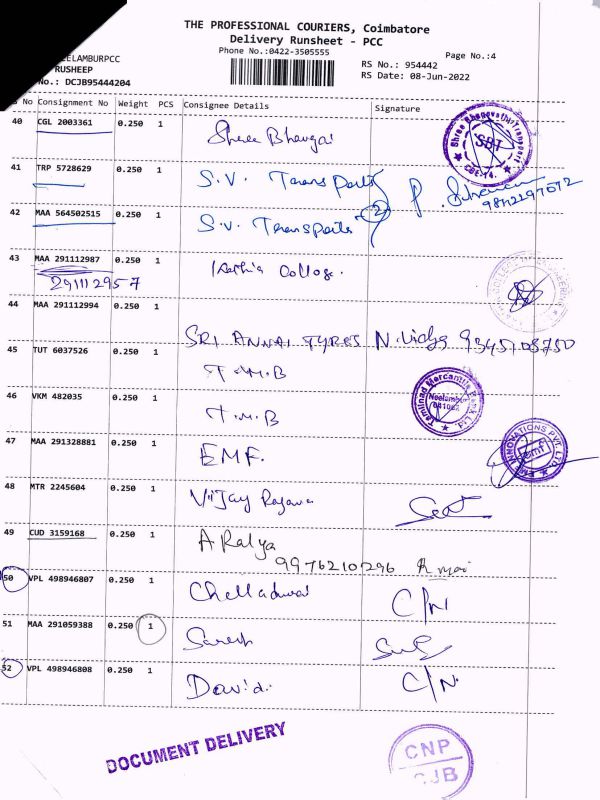 THE PROFESSIONAL COURIERS, Coimbatore
Delivery Runsheet - PCC
Phone No.:0422-3505555
Page No.:4
EELAMBURPCC
RUSHEEP
No.: DCJB95444204
RS No.: 954442
RS Date: 08-Jun-2022
No Consignment No Weight PCS Consignee Details Signature
40 CGL 2003361 0.250 1 Shree Bhangai
SBT
CBE-14.
41 TRP 5728629 0.250 1 S.V. Transports
9842297072
42 MAA 564502515 0.250 1 S.V. Transports
2
43 MAA 291112987 0.250 1 Kathir College.
291112957
44 MAA 291112994 0.250 1
SRI ANNAI TYRES N. Vidya 9345108750
45 TUT 6037526 0.250 1 T.M.B
Tamilnad Mercantile Bank Ltd.
Neelambur
641062
46 VKM 482035 0.250 1 T.M.B
47 MAA 291328881 0.250 1 EMF.
EMF INNOVATIONS PVT. LTD.
emf
48 MTR 2245604 0.250 1 Vijay Ragava
49 CUD 3159168 0.250 1 A Ralya
9976210296
50 VPL 498946807 0.250 1 Chelladurai C/N
51 MAA 291059388 0.250 1 Suresh
52 VPL 498946808 0.250 1 David. C/N.
DOCUMENT DELIVERY
CNP
CJB